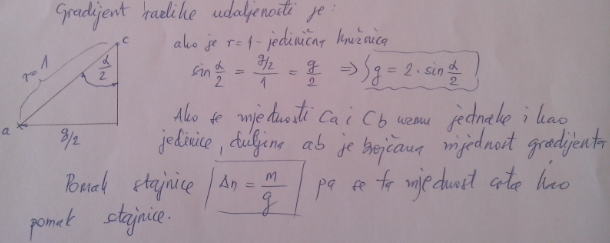 Gradijent razlike udaljenosti je:
ako je r=1 - jedinična kružnica
r=1
c
α/2
a
g/2
sin α/2 = g/2 / 1 = g/2 ⇒ g = 2 · sin α/2
Ako se vrijednosti Ca i Cb uzmu jednake i kao
jedinice, duljina ab je brojčana vrijednost gradijenta
Pomak stajnice Δn = m/g pa se ta vrijednost crta kao
pomak stajnice.